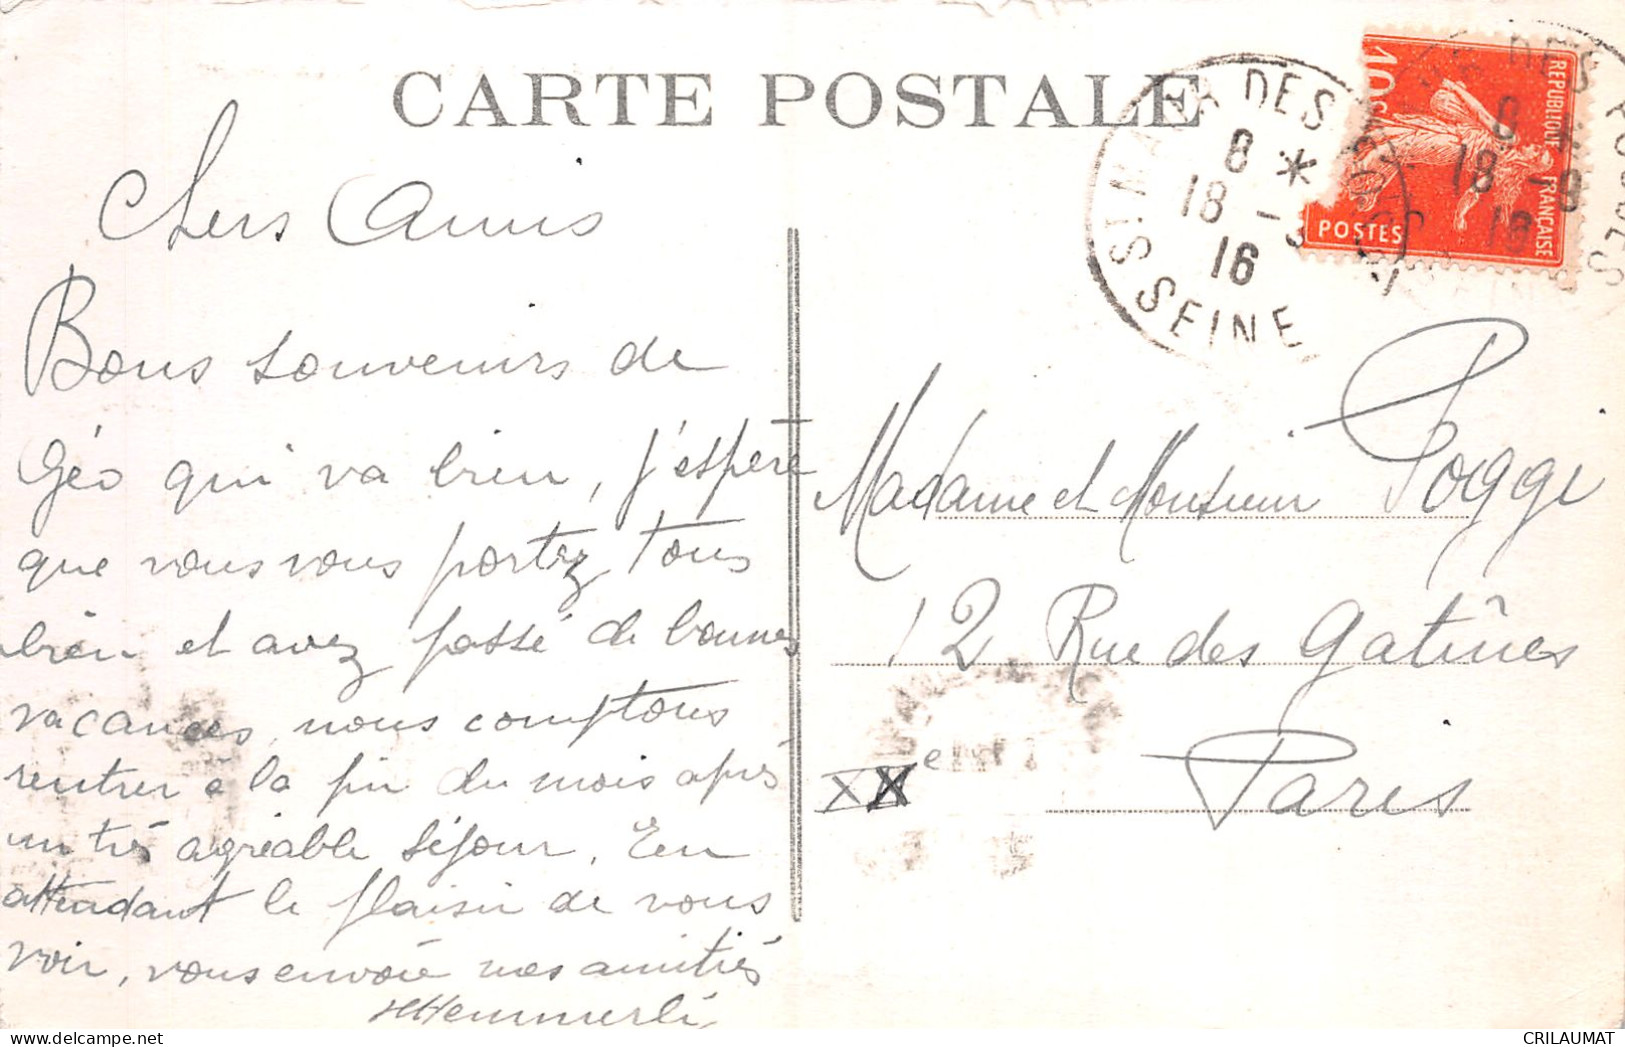 CARTE POSTALE
Chers Amis
Bons souvenirs de
Géo qui va bien, j'espère
que vous vous portez tous
bien et avez passé de bonnes
vacances, nous comptons
rentrer à la fin du mois après
un très agréable séjour. En
attendant le plaisir de vous
voir, vous envoie mes amitiés
Hemmerlé
ST MAUR DES
8 *
18 - 9
16
SEINE
10c
REPUBLIQUE FRANÇAISE
POSTES
Madame et Monsieur Poggi
12 Rue des Gatînes
Paris
XXe
CRILAUMAT